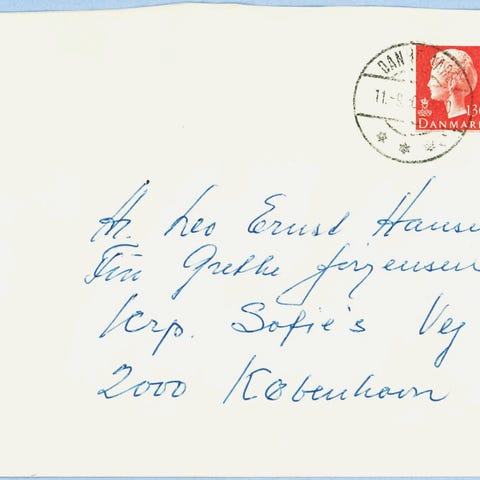 DANMARK
11.-9.
130
DANMARK
Hr. Leo Ernst Hansen
Frü Grethe Jørgensen
Krp. Sofie's Vej
2000 København